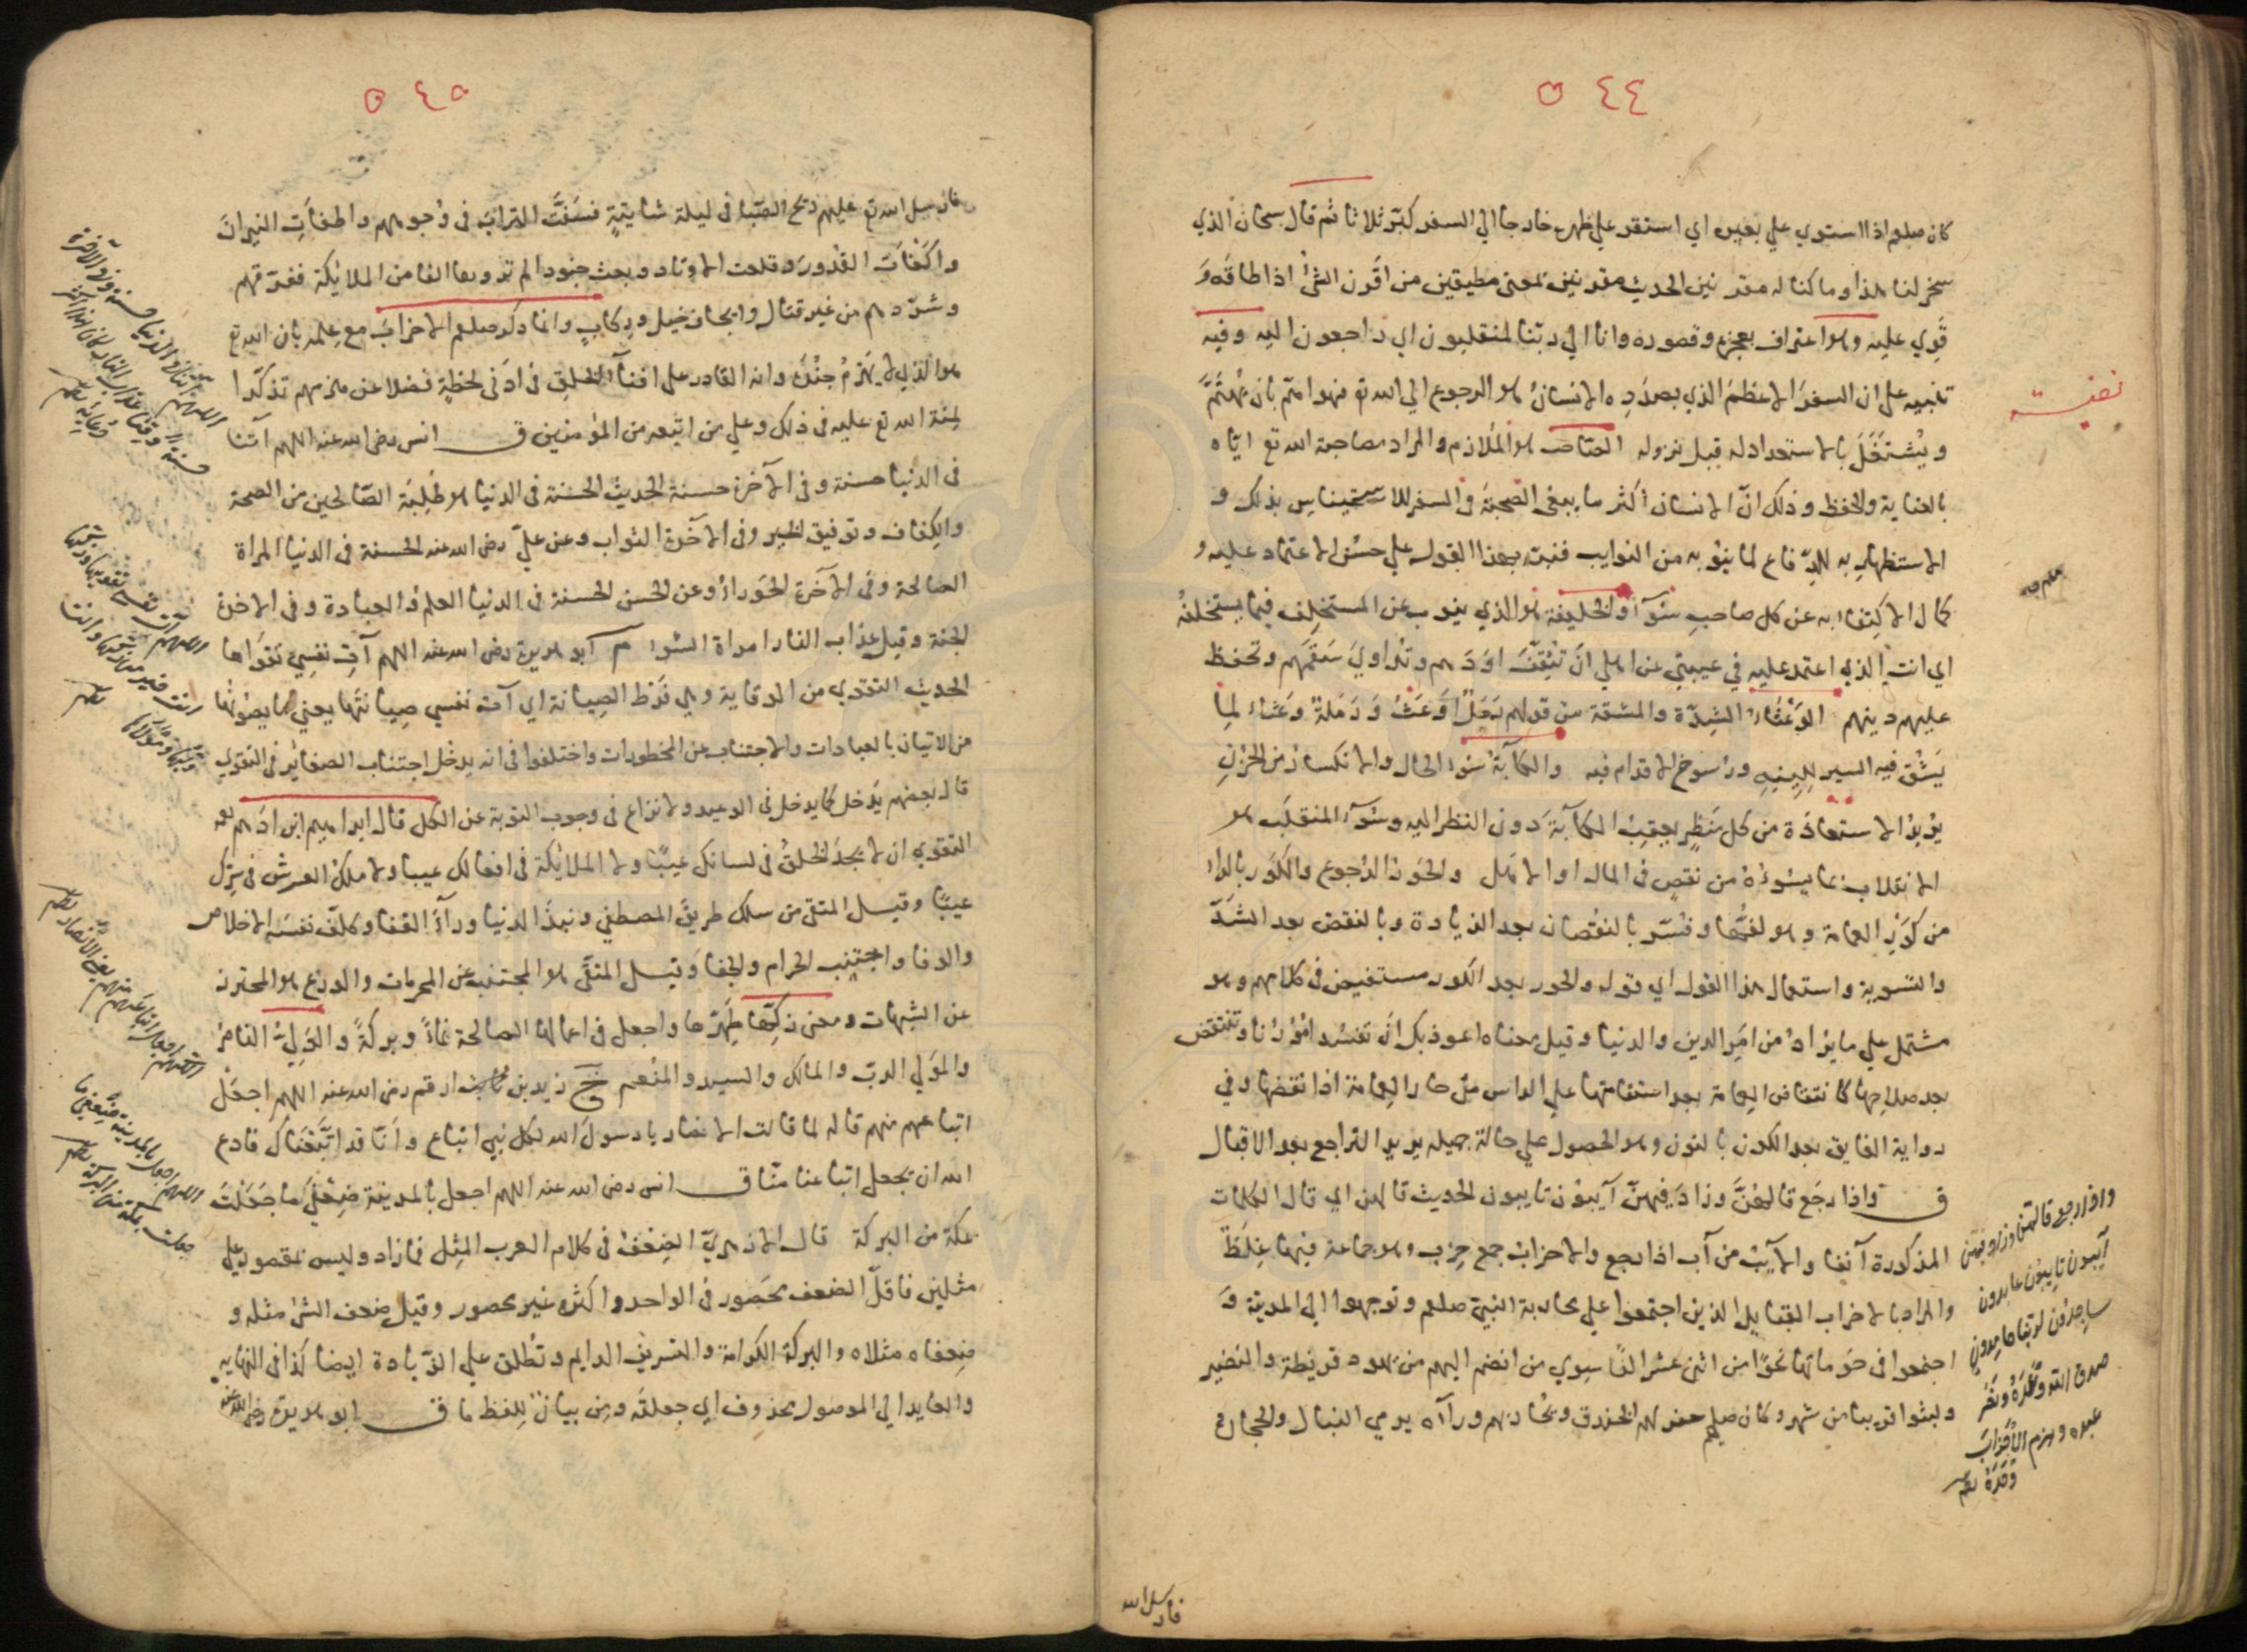 ٥٤٤
كان صلعم اذا استوي علي بعيره اي استقر علي ظهره خارجا الي السفر كبّر ثلاثا ثم قال سبحان الذي
سخر لنا هذا وما كنا له مقرنين الحديث مقرنين بمعني مطيقين من اقرن الشئ اذا طاقه و
قوي عليه وهو اعتراف بعجزه وقصوره وانا الي ربنا لمنقلبون اي راجعون اليه وفيه
تنبيه علي ان السفر الاعظم الذي بصدده الانسان هو الرجوع الي الله تع فهو اهم بان يهتم
ويشتغل بالاستعداد له قبل نزوله الصاحب هو الملازم والمراد مصاحبة الله تع اياه
بالعناية والحفظ وذلك ان الانسان اكثر ما يبغي الصحبة في السفر للاستيناس بذلك و
الاستظهار به للدفاع لما ينوبه من النوايب فنبه بهذا القول علي حسن الاعتماد عليه و
كمال الاكتفاء به عن كل صاحب سواه والخليفة هو الذي ينوب عن المستخلف فيما يستخلفه
اي انت الذي اعتمد عليه في غيبتي عن اهلي ان تثقف اودهم وتداوي سقمهم وتحفظ
عليهم دينهم الوعثاء الشدة والمشقة من قولهم رمل اوعث و رملة وعثاء لما
يشق فيه السير للينه ورسوخ الاقدام فيه والكآبة سوء الحال والانكسار من الحزن
يريد الاستعاذة من كل منظر يعقب الكآبة دون النظر اليه وسوء المنقلب هو
الانقلاب بما يسوءه من نقص في المال او الاهل والحور الرجوع والكور بالراء
من كور العمامة وهو لفها وفسر بالنقصان بعد الزيادة وبالنقض بعد الشد
والتسوية واستعمال هذا القول اي قوله والحور بعد الكور مستفيض في كلامهم وهو
مشتمل علي ما يراد من امر الدين والدنيا وقيل معناه اعوذ بك ان تفسد امورنا وتنتقض
بعد صلاحها كانتقاض العمامة بعد استقامتها علي الراس مثل حار العمامة اذا نقضها وفي
رواية الفايق بعد الكون بالنون وهو الحصول علي حالة جميله يريد التراجع بعد الاقبال
ق واذا رجع قالهن وزاد فيهن آيبون تايبون الحديث قالهن اي قال الكلمات
المذكورة آنفا والآيب من آب اذا رجع والاحزاب جمع حزب وهو جماعة فيها غلظ
والمراد بالاحزاب القبايل الذين اجتمعوا علي محاربة النبي صلعم وتوجهوا الي المدينة و
اجتمعوا في حوماتها نحوا من اثني عشر الفا سوي من انضم اليهم من يهود قريظة والنضير
ولبثوا قريبا من شهر وكان صلعم حفر لهم الخندق وتحاربهم وراه يرمي النبال والحجارة
واذا رجع قالهن وزاد فيهن
آيبون تايبون عابدون
ساجدون لربنا حامدون
صدق الله وعده ونصر
عبده وهزم الاحزاب
وحده
فارسل الله
٥٤٥
فارسل الله تع عليهم ريح الصبا في ليلة شاتية فسفت التراب في وجوههم واطفأت النيران
واكفأت القدور وقلعت الاوتاد وبعث جنودا لم تروها الفا من الملائكة ففرقهم
وشردهم من غير قتال وايجاف خيل وركاب وانما ذكر صلعم الاحزاب مع علمه بان الله تع
هو الذي لا يهزم جنده وانه القادر علي افناء الخلق في ادني لحظة فضلا عن هزمهم تذكرا
لمنة الله تع عليه في ذلك وعلي من اتبعه من المؤمنين ق انس رضي الله عنه اللهم آتنا
في الدنيا حسنة وفي الآخرة حسنة الحديث الحسنة في الدنيا هو طلبة الصالحين من الصحة
والكفاف وتوفيق الخير وفي الآخرة الثواب وعن علي رضي الله عنه الحسنة في الدنيا المراة
الصالحة وفي الآخرة الحوراء وعن الحسن الحسنة في الدنيا العلم والعبادة وفي الاخرة
الجنة وقيل عذاب النار امراة السوء م ابو هريرة رضي الله عنه اللهم آت نفسي تقواها
الحديث التقوي من الوقاية وهي فرط الصيانة اي آت نفسي صيانتها يعني ما يصونها
من الاتيان بالعبادات والاجتناب عن المحظورات واختلفوا في انه يدخل اجتناب الصغائر في التقوي
قال بعضهم يدخل كما يدخل في الوعيد ولا نزاع في وجوب التوبة عن الكل قال ابراهيم ابن ادهم
التقوي ان لا يجد الخلق في لسانك عيبا ولا الملائكة في افعالك عيبا ولا ملك العرش في سرك
عيبا وقيل المتقي من سلك طريق المصطفي ونبذ الدنيا وراء القفا وكلف نفسه الاخلاص
والوفا واجتنب الحرام والجفا وقيل المتقي هو المجتنب عن المحرمات والورع هو المحترز
عن الشبهات ومعني زكها طهرها واجعل في اعمالها الصالحة نماء وبركة والولي الناصر
والمولي الرب والمالك والسيد والمنعم خ زيد بن ارقم رضي الله عنه اللهم اجعل
اتباعهم منهم قاله لما قالت الانصار يا رسول الله لكل نبي اتباع وانا قد اتبعناك فادع
الله ان يجعل اتباعنا منا ق انس رضي الله عنه اللهم اجعل بالمدينة ضعفي ما جعلت
بمكة من البركة قال الازهري الضعف في كلام العرب المثل فما زاد وليس بمقصور علي
مثلين فاقل الضعف محصور في الواحد واكثره غير محصور وقيل ضعف الشئ مثله و
ضعفاه مثلاه والبركة الكرامة والتشريف الدايم وتطلق علي الزيادة ايضا كذا في النهايه
والعايد الي الموصول محذوف اي جعلته ومن بيان للفظ ما ق ابو هريرة رضي الله عنه
اللهم آتنا في الدنيا حسنة وفي الآخرة
حسنة وقنا عذاب النار
اللهم آت نفسي تقويها وزكها
انت خير من زكاها وانت
وليها ومولاها
اللهم اجعل اتباعهم منهم يعني الانصار
اللهم اجعل بالمدينة ضعفي ما
جعلت بمكة من البركة